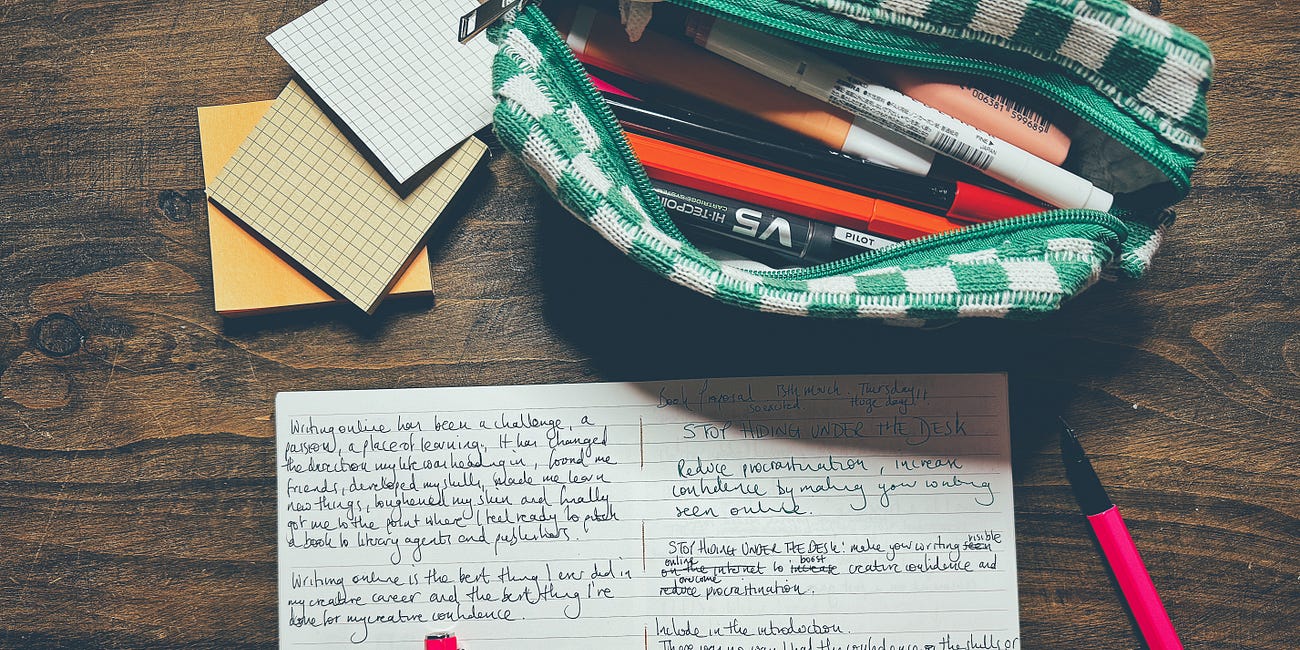 HI-TECPOINT
CARTRIDGE SYSTEM
V5
PILOT
006381 599689
JAPAN
Writing online has been a challenge, a
passion, a place of learning. It has changed
the direction my life was heading in, found me
friends, developed my skills, made me learn
new things, toughened my skin and finally
got me to the point where I feel ready to pitch
a book to literary agents and publishers.
Writing online is the best thing I ever did in
my creative career and the best thing I've
done for my creative confidence.
Book Proposal 13th March. Thursday!!
so excited. Huge day!!
STOP HIDING UNDER THE DESK
Reduce procrastination, increase
confidence by making your writing
seen online.
visible
STOP HIDING UNDER THE DESK: make your writing seen
online boost
on the internet to increase creative confidence and
overcome
reduce procrastination.
Include in the introduction.
There was no way I had the confidence or the skills or